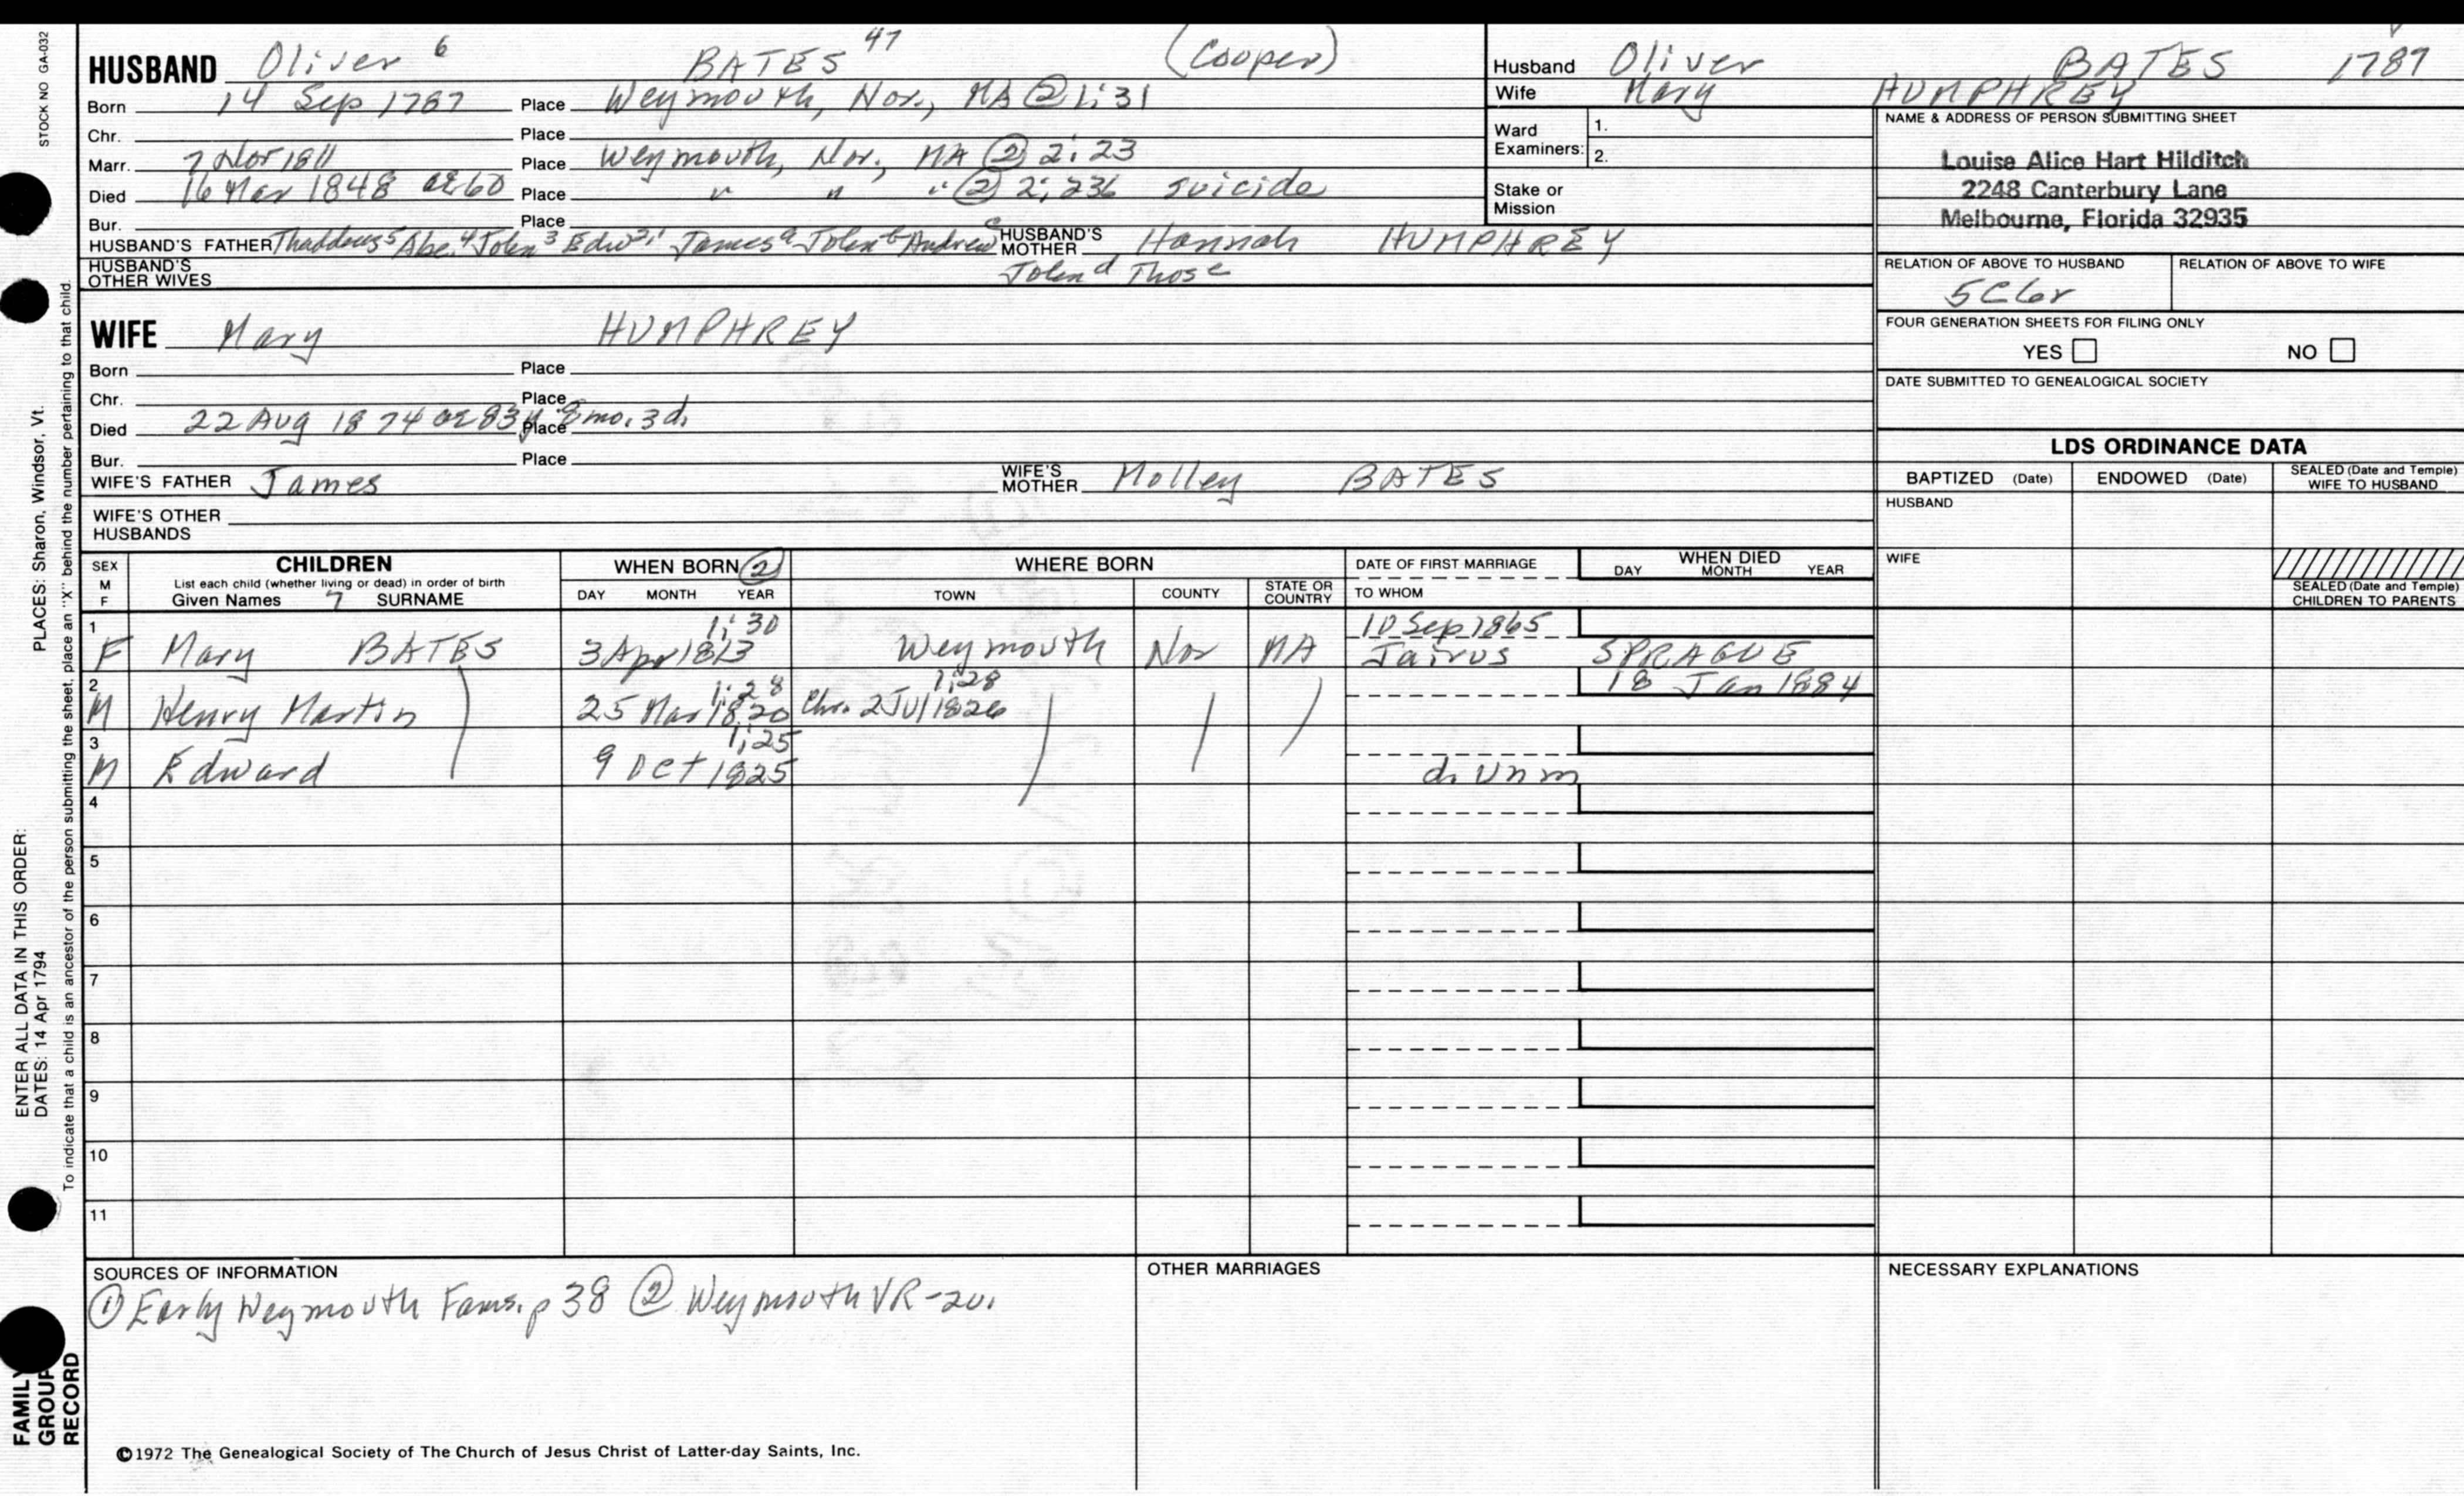 STOCK NO GA-032
HUSBAND Oliver 6 BATES 47 (Cooper)
Born 14 Sep 1787 Place Weymouth, Nor., MA @ 1:31
Chr. Place
Marr. 7 Nov 1811 Place Weymouth, Nor., MA (2) 2:23
Died 16 Mar 1848 ae 60 Place " " " (2) 2:236 suicide
Bur. Place
HUSBAND'S FATHER Thaddeus 5 Abe. 4 John 3 Edw 2,1 James a John b Andrew c HUSBAND'S MOTHER Hannah HUMPHREY
HUSBAND'S OTHER WIVES John d Thos e
WIFE Mary HUMPHREY
Born Place
Chr. Place
Died 22 Aug 1874 ae 83y 8mo. 3d. Place
Bur. Place
WIFE'S FATHER James WIFE'S MOTHER Molley BATES
WIFE'S OTHER HUSBANDS
Husband Oliver BATES 1787
Wife Mary HUMPHREY
Ward Examiners: 1.
2.
Stake or Mission
NAME & ADDRESS OF PERSON SUBMITTING SHEET
Louise Alice Hart Hilditch
2248 Canterbury Lane
Melbourne, Florida 32935
RELATION OF ABOVE TO HUSBAND RELATION OF ABOVE TO WIFE
5C6r
FOUR GENERATION SHEETS FOR FILING ONLY
YES NO
DATE SUBMITTED TO GENEALOGICAL SOCIETY
LDS ORDINANCE DATA
BAPTIZED (Date) ENDOWED (Date) SEALED (Date and Temple) WIFE TO HUSBAND
HUSBAND
WIFE
SEALED (Date and Temple) CHILDREN TO PARENTS
SEX M F CHILDREN WHEN BORN (2) WHERE BORN DATE OF FIRST MARRIAGE WHEN DIED
List each child (whether living or dead) in order of birth DAY MONTH YEAR
Given Names 7 SURNAME DAY MONTH YEAR TOWN COUNTY STATE OR COUNTRY TO WHOM
1 1:30 10 Sep 1865
F Mary BATES 3 Apr 1813 Weymouth Nor MA Jairus SPRAGUE
2 1:28 1:28 18 Jan 1884
M Henry Martin 25 Mar 1820 Chr. 2 Jul 1826
3 1:25
M Edward 9 Oct 1825 d. Unm
4
5
6
7
8
9
10
11
SOURCES OF INFORMATION OTHER MARRIAGES NECESSARY EXPLANATIONS
(1) Early Weymouth Fams. p 38 (2) Weymouth VR-20.
©1972 The Genealogical Society of The Church of Jesus Christ of Latter-day Saints, Inc.
PLACES: Sharon, Windsor, Vt.
To indicate that a child is an ancestor of the person submitting the sheet, place an "X" behind the number pertaining to that child.
ENTER ALL DATA IN THIS ORDER:
DATES: 14 Apr 1794
FAMILY GROUP RECORD